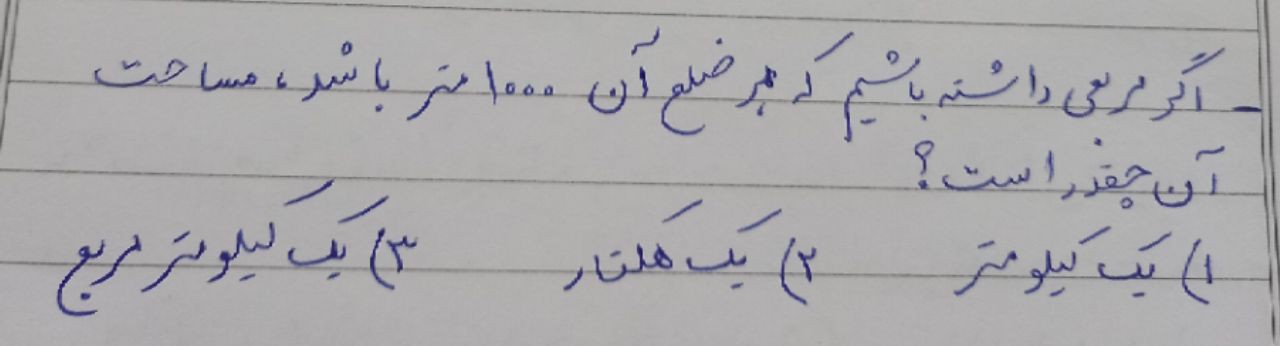 - اگر مربعی داشته باشیم که هر ضلع آن ۱۰۰۰ متر باشد، مساحت
آن چقدر است؟
۱) یک کیلومتر ۲) یک هکتار ۳) یک کیلومتر مربع